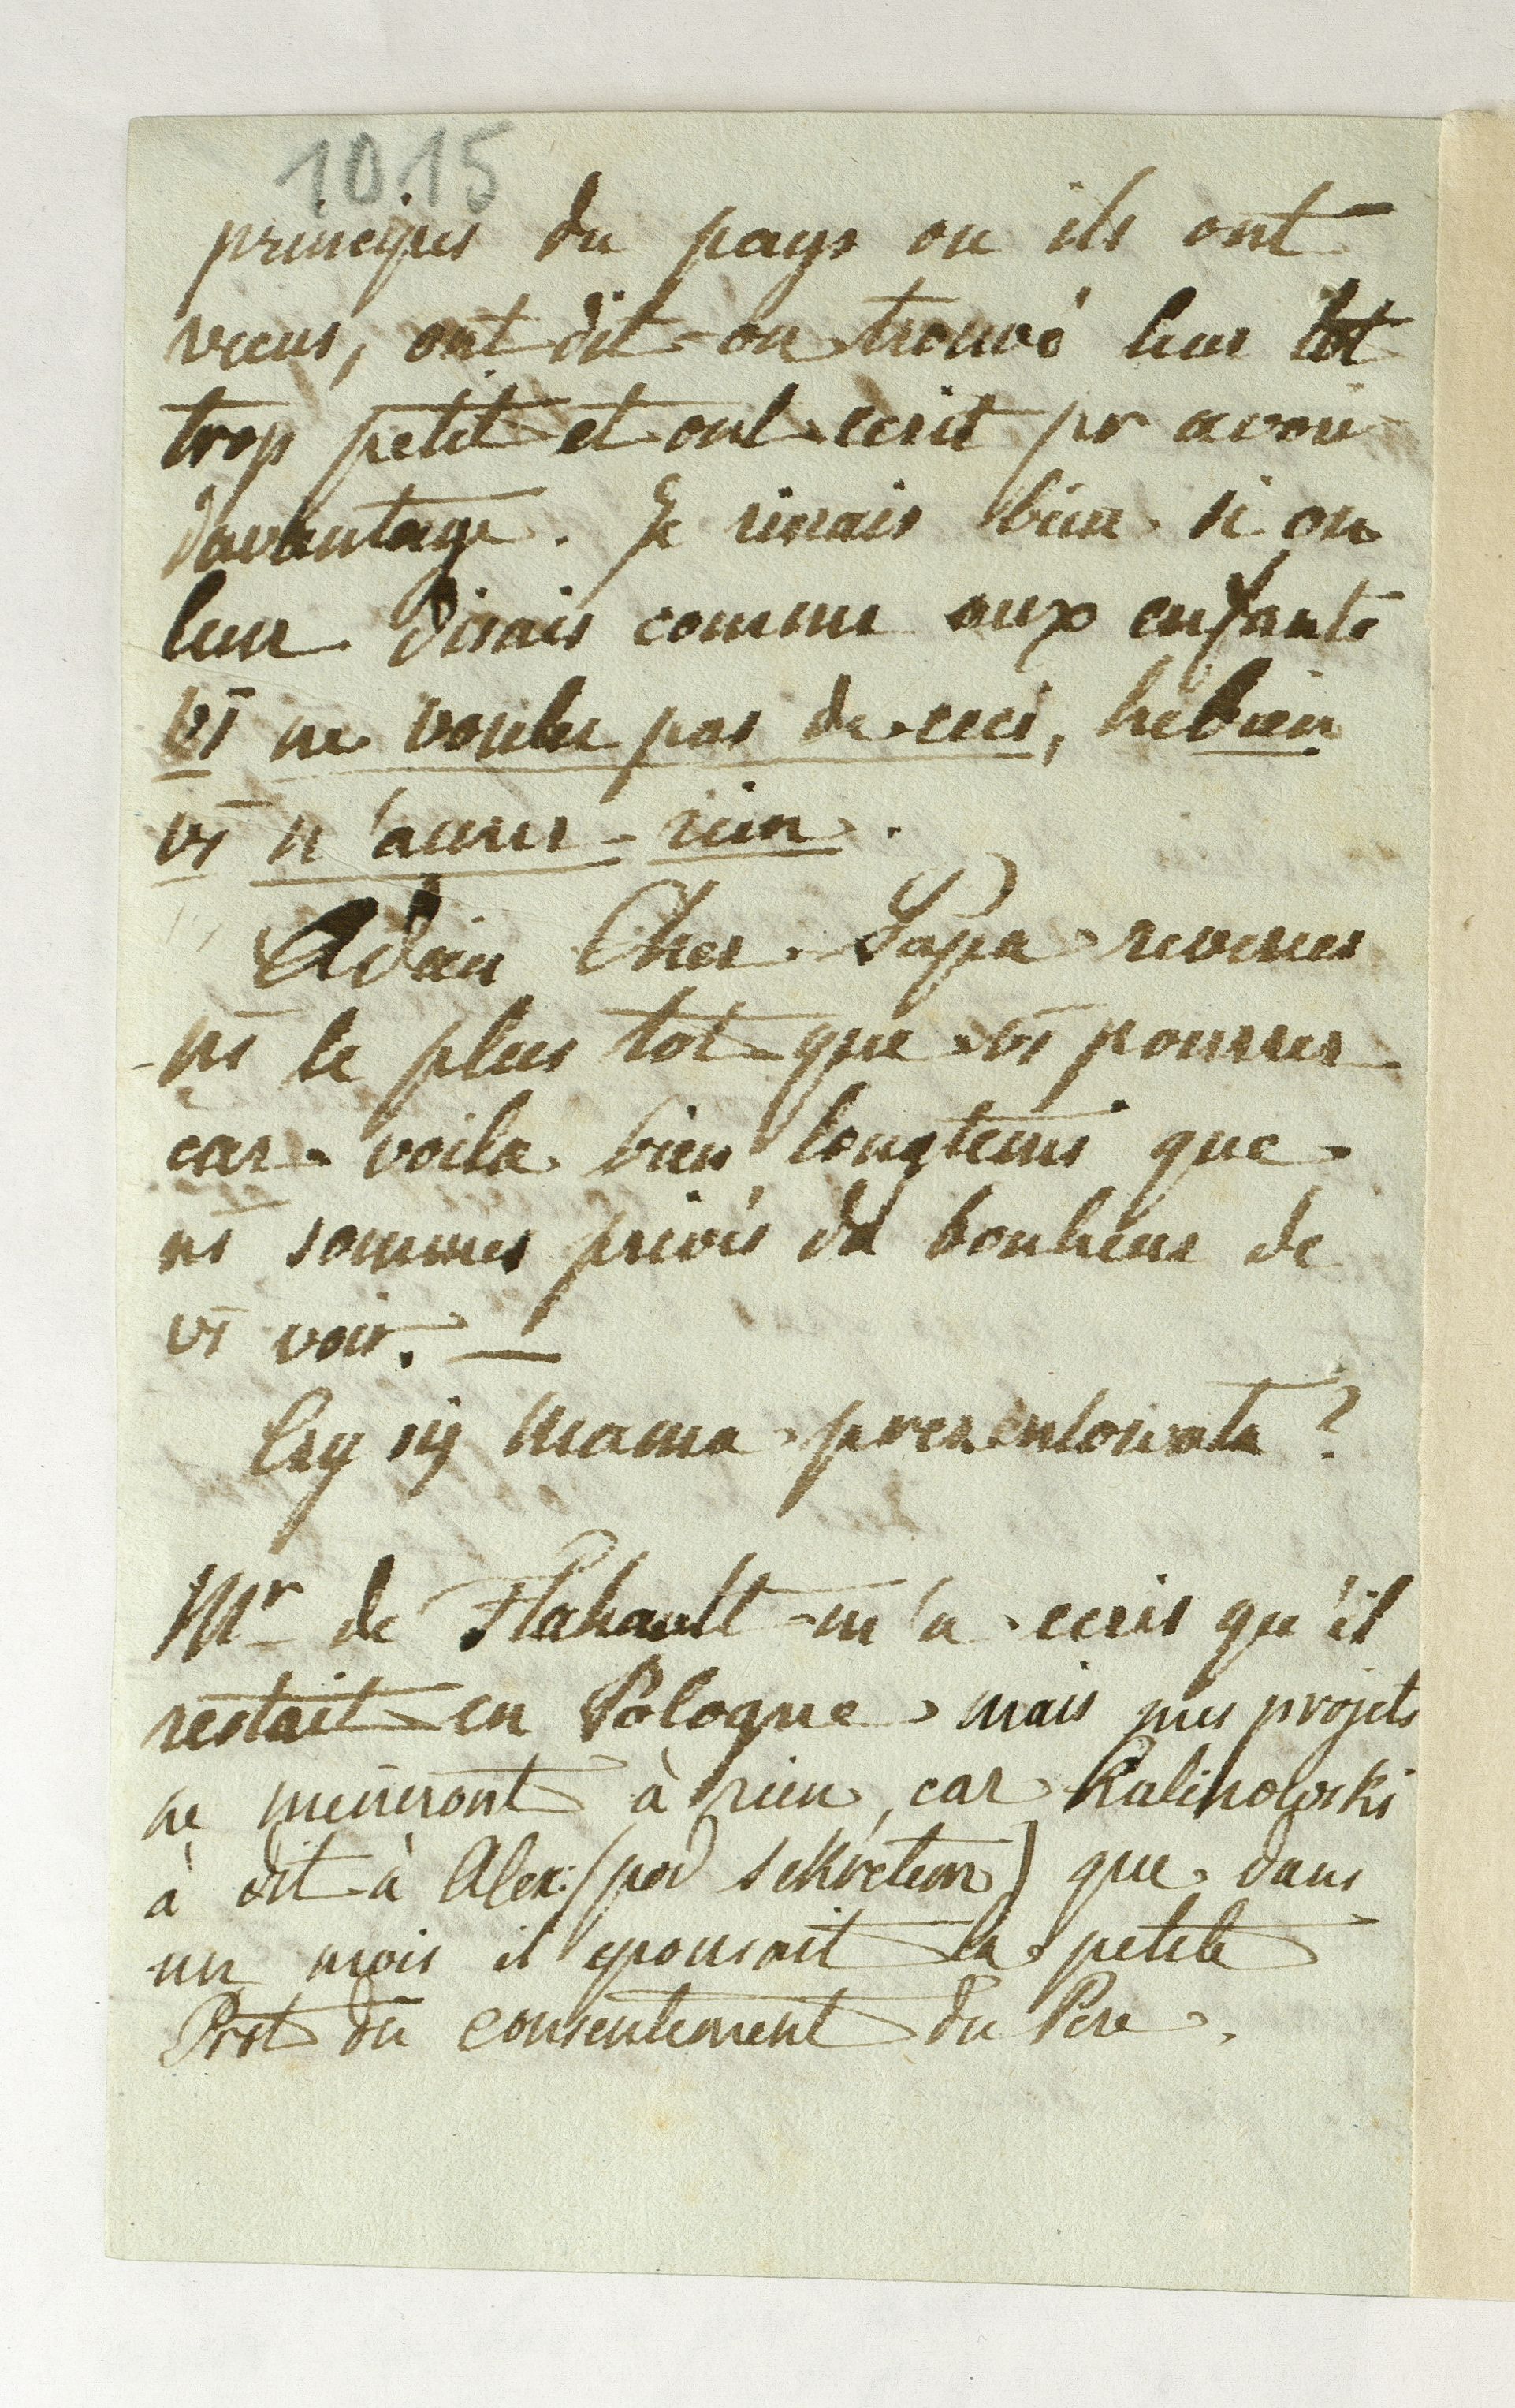 1015
principes du pays ou ils ont
vecus, ont dit-on trouvé leur lot
trop petit et ont ecrit pr avoir
davantage. Je rirais bien si on
leur disais comme aux enfants
vs ne voulez pas de ceci, hebien
vs n'aurez rien.
Adieu Cher Papa revenez
ns le plus tot que vs pourrez
car voila bien longtems que
ns sommes privés du bonheur de
vs voir. —
Czy iy Mama prezentowata?
Mr de Flahault m'a ecris qu'il
restait en Pologne mais mes projets
ne meneront à rien, car Kalinowski
à dit à Alex: (pod sekretem) que dans
un mois il epousait la petite
Prot du consentement du Pere.